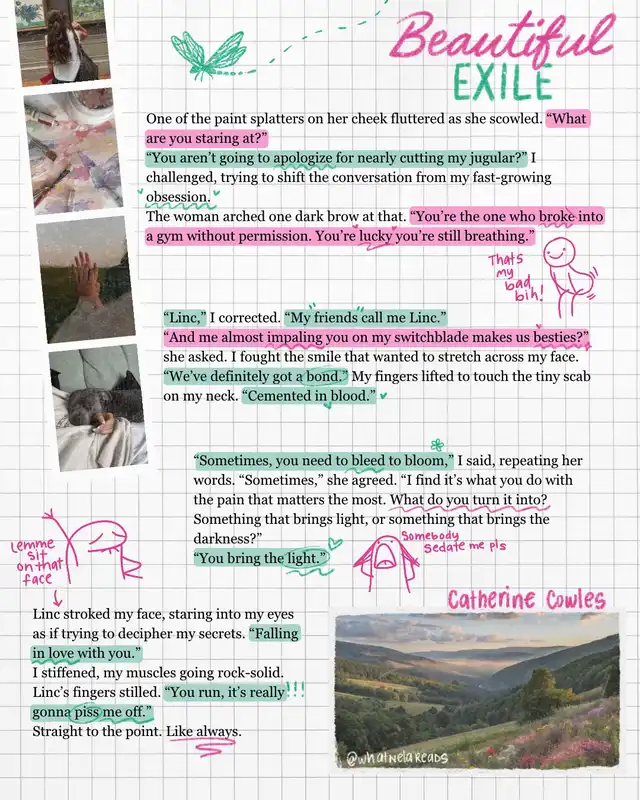 Beautiful
EXILE
One of the paint splatters on her cheek fluttered as she scowled. “What
are you staring at?”
“You aren’t going to apologize for nearly cutting my jugular?” I
challenged, trying to shift the conversation from my fast-growing
obsession.
The woman arched one dark brow at that. “You’re the one who broke into
a gym without permission. You’re lucky you’re still breathing.”
Thats
my
bad
bih!
“Linc,” I corrected. “My friends call me Linc.”
“And me almost impaling you on my switchblade makes us besties?”
she asked. I fought the smile that wanted to stretch across my face.
“We’ve definitely got a bond.” My fingers lifted to touch the tiny scab
on my neck. “Cemented in blood.”
“Sometimes, you need to bleed to bloom,” I said, repeating her
words. “Sometimes,” she agreed. “I find it’s what you do with
the pain that matters the most. What do you turn it into?
Something that brings light, or something that brings the
darkness?”
“You bring the light.”
Somebody
Sedate me pls
Lemme
sit
on that
face
Linc stroked my face, staring into my eyes
as if trying to decipher my secrets. “Falling
in love with you.”
I stiffened, my muscles going rock-solid.
Linc’s fingers stilled. “You run, it’s really !!!
gonna piss me off.”
Straight to the point. Like always.
Catherine Cowles
@whatnelareads